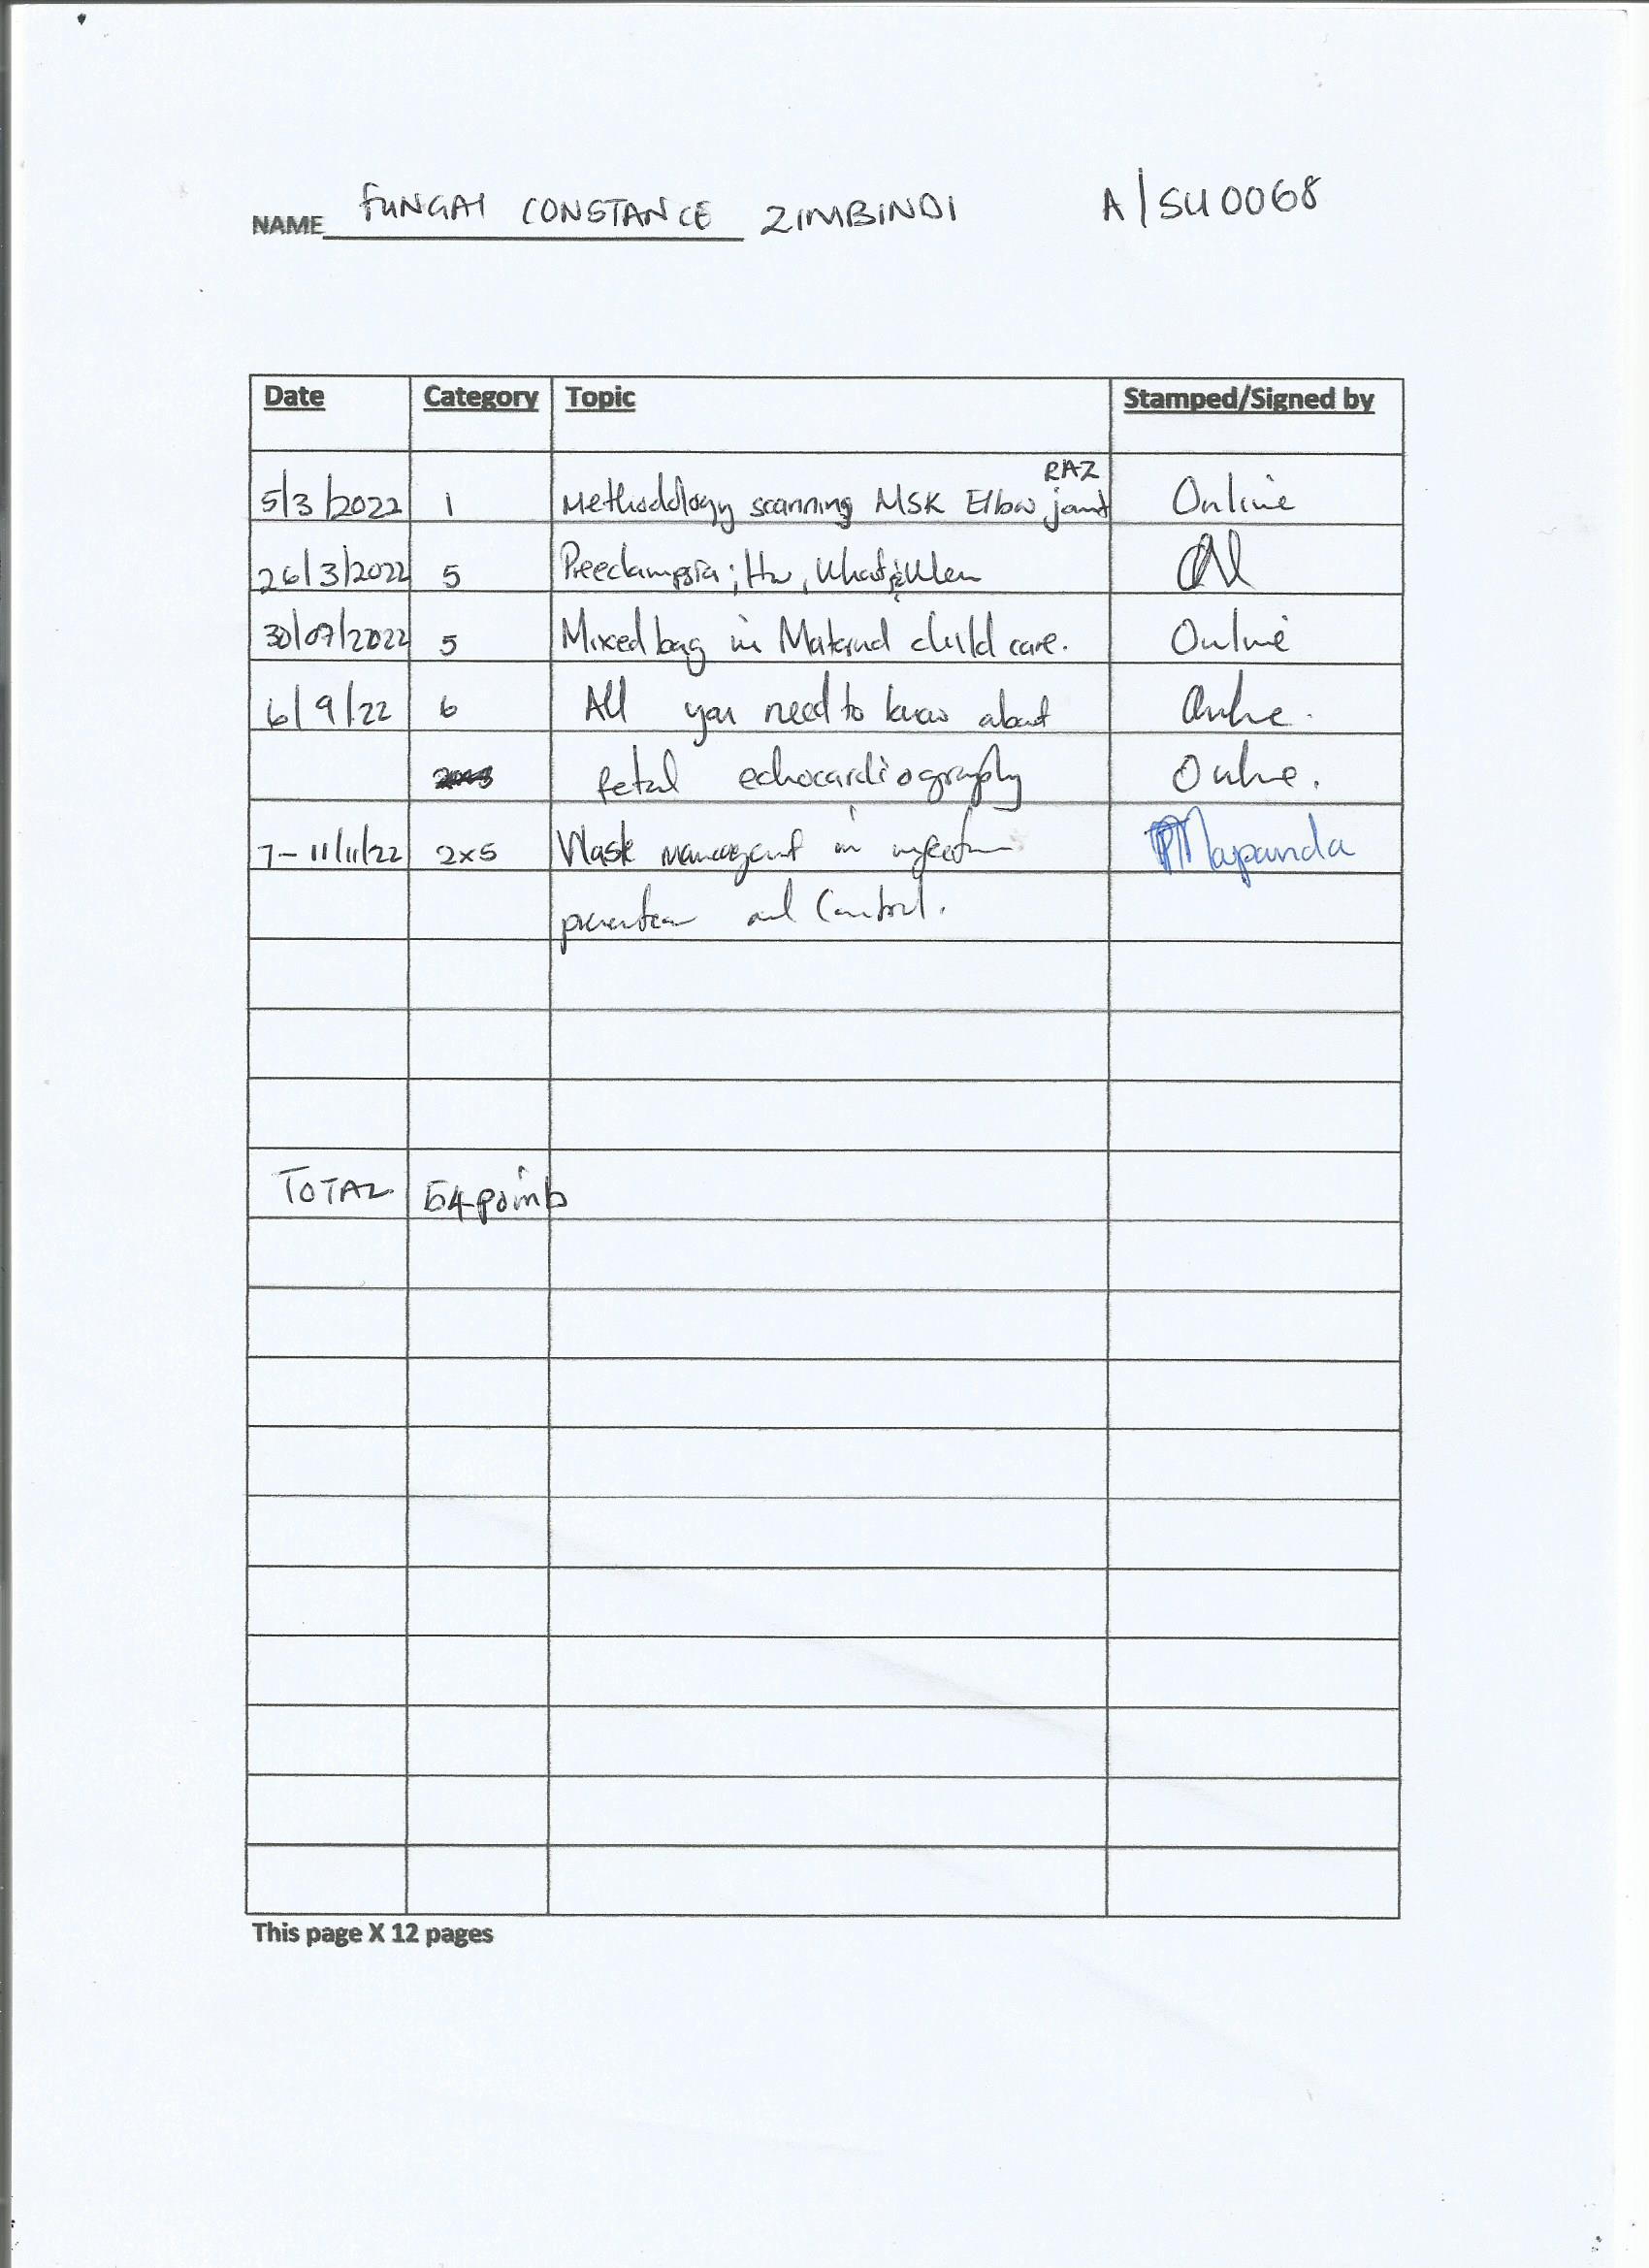 NAME FUNGAI CONSTANCE ZIMBINDI A/SU0068
Date Category Topic Stamped/Signed by
RAZ
5/3/2022 1 Methodology scanning MSK Elbow joint Online
26/3/2022 5 Preeclampsia; How, What & When
30/07/2022 5 Mixed bag in Maternal child care. Online
6/9/22 6 All you need to know about Online.
fetal echocardiography Online.
7-11/11/22 2x5 Waste management in infection Mapanda
prevention and Control.
TOTAL 54 points
This page X 12 pages